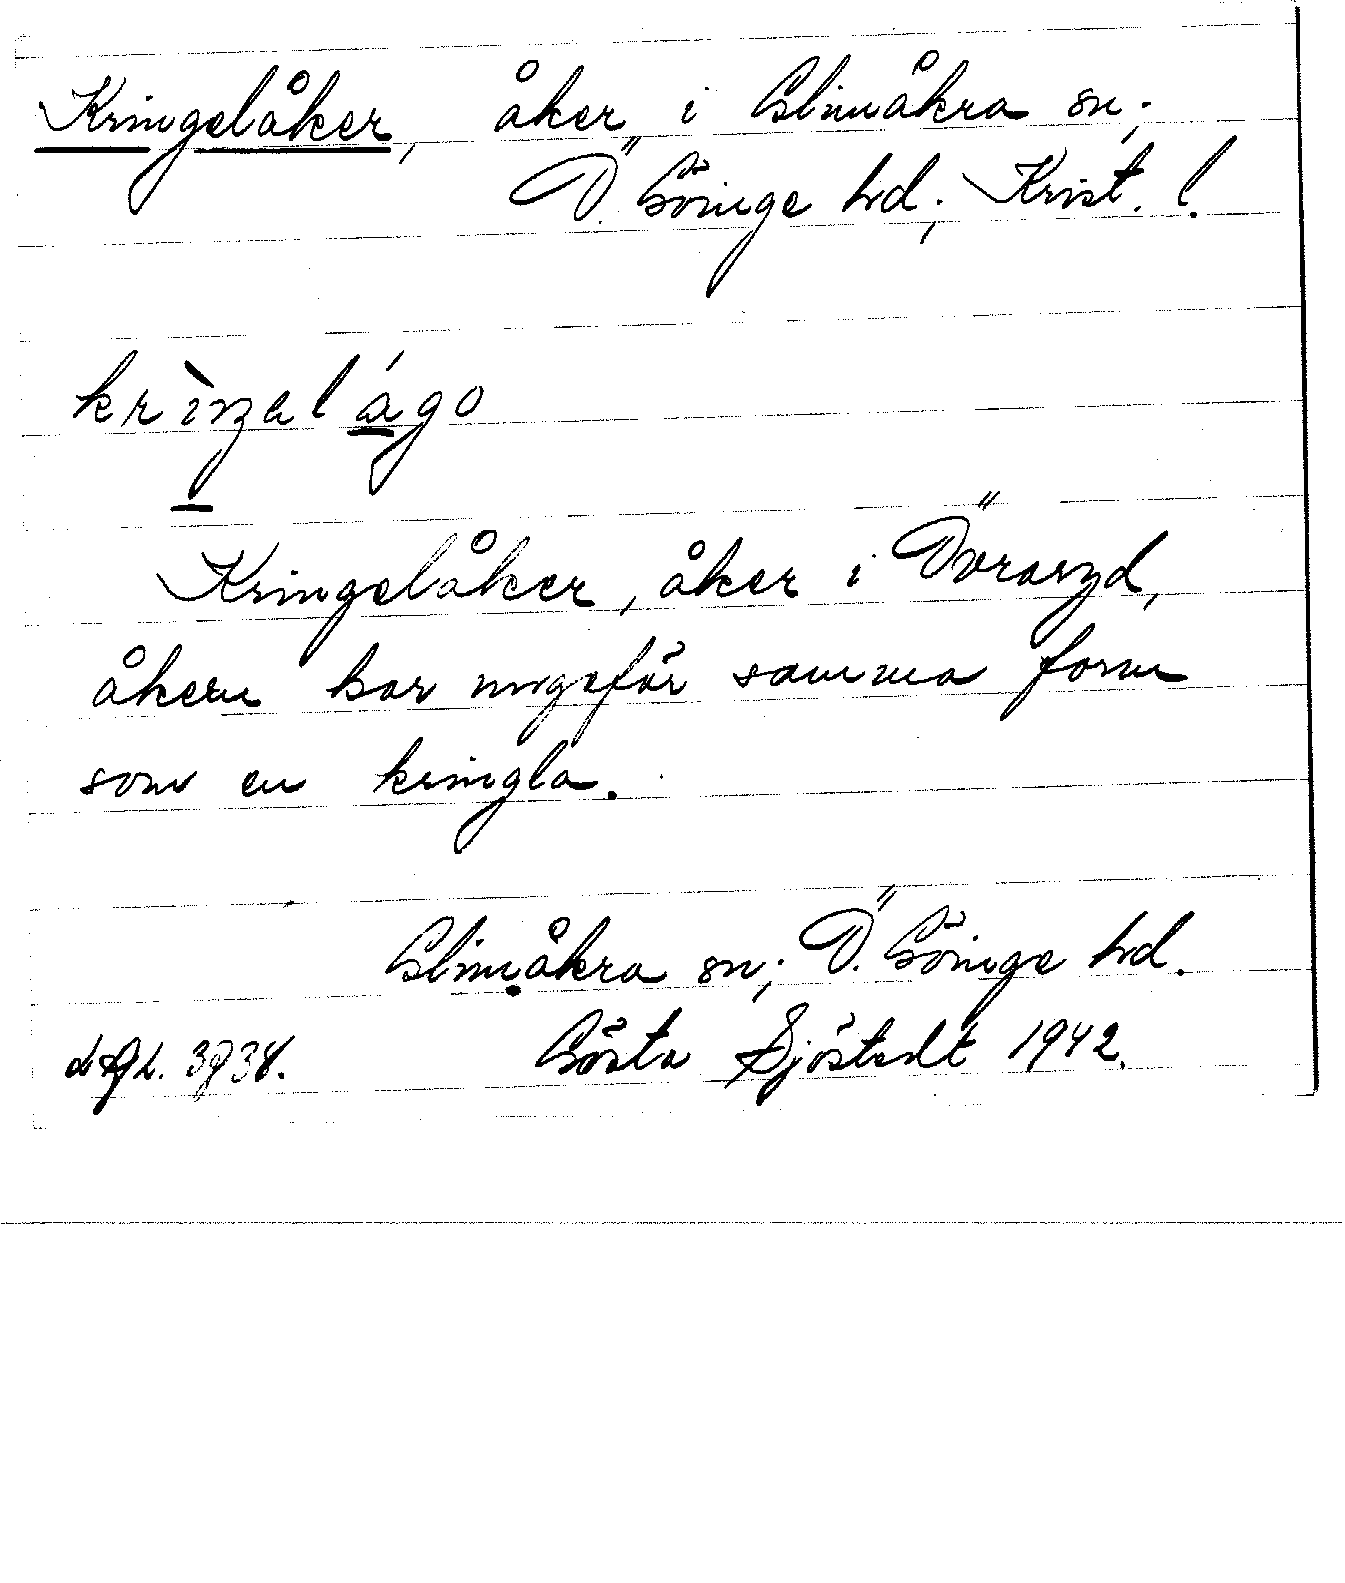 Kringelåker, åker i Glimåkra sn;
Ö. Göinge hd; Krist. l.
Kringelåker, åker i Öraryd,
åkern har ungefär samma form
som en kringla.
Glimåkra sn; Ö. Göinge hd.
Gösta Sjöstedt 1942.